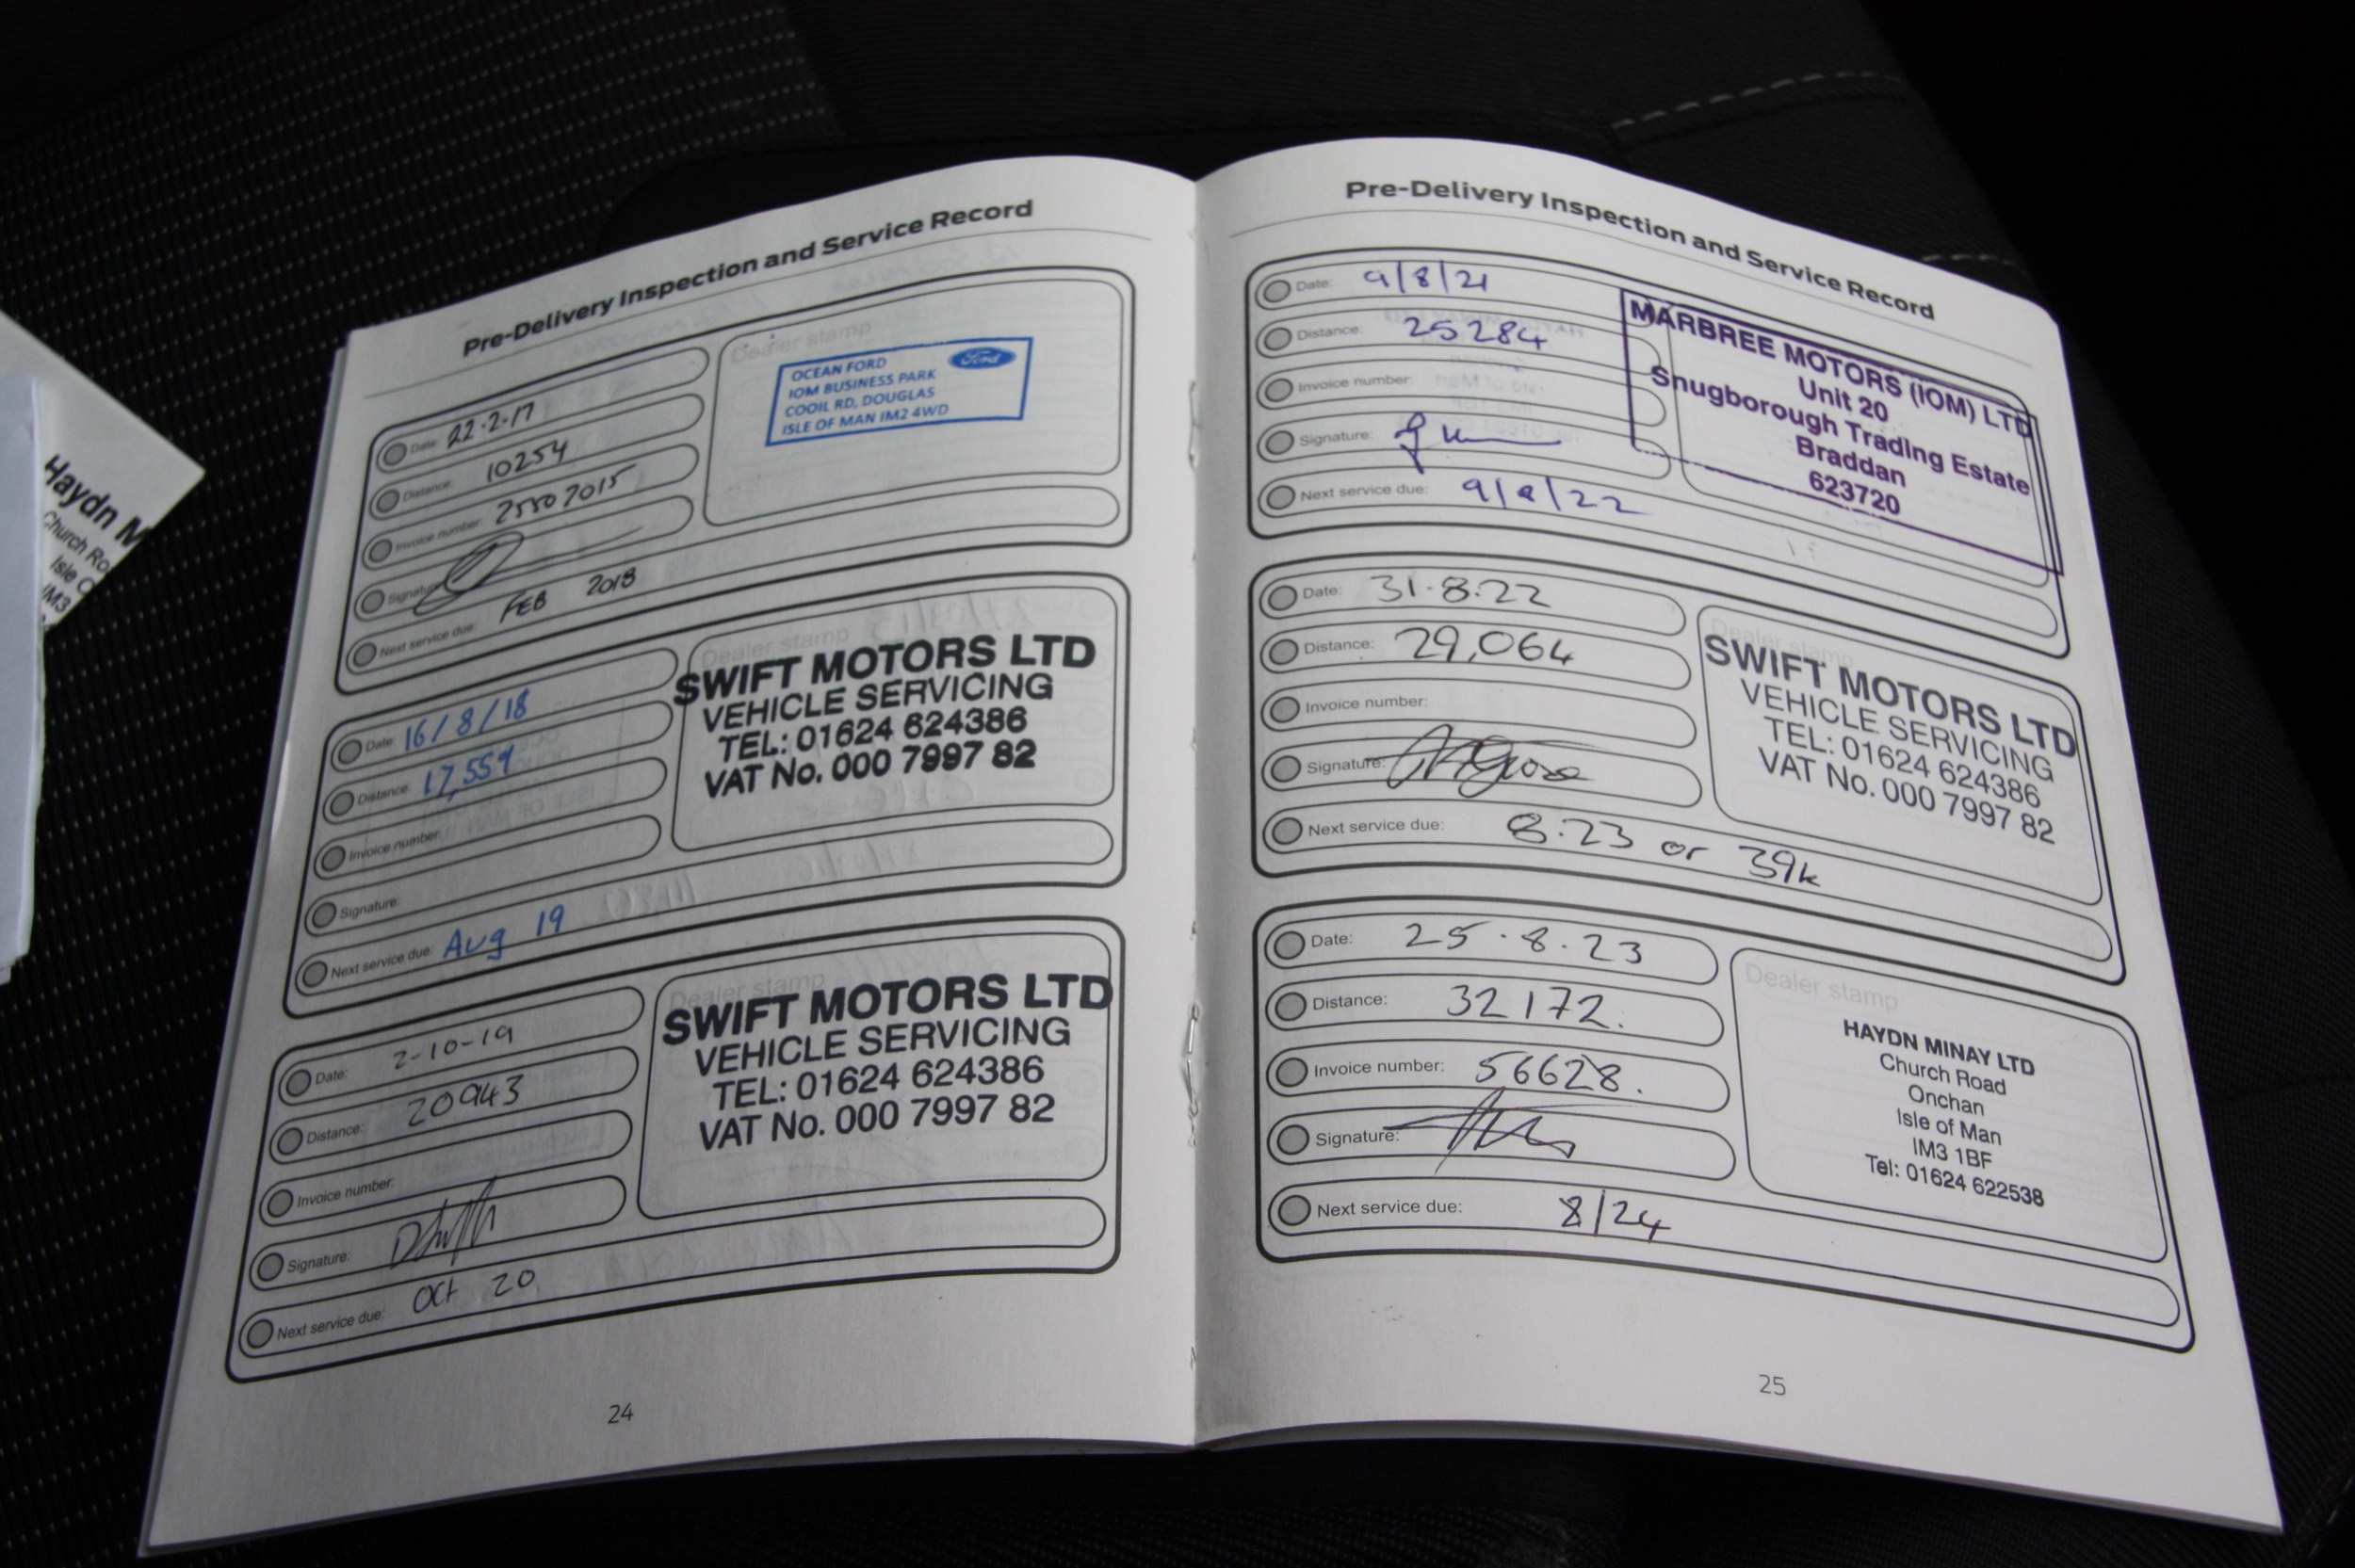 Haydn M
Church Ro
Isle O
IM3
Pre-Delivery Inspection and Service Record
Date: 22.2.17
Distance: 10254
Invoice number: 25502015
Signature:
Next service due: FEB 2018
Dealer stamp
OCEAN FORD
Ford
IOM BUSINESS PARK
COOIL RD, DOUGLAS
ISLE OF MAN IM2 4WD
Date: 16/8/18
Distance: 17,559
Invoice number:
Signature:
Next service due: Aug 19
Dealer stamp
SWIFT MOTORS LTD
VEHICLE SERVICING
TEL: 01624 624386
VAT No. 000 7997 82
Date: 2-10-19
Distance: 20943
Invoice number:
Signature:
Next service due: Oct 20
Dealer stamp
SWIFT MOTORS LTD
VEHICLE SERVICING
TEL: 01624 624386
VAT No. 000 7997 82
24
Pre-Delivery Inspection and Service Record
Date: 9/8/21
Distance: 25284
Invoice number:
Signature:
Next service due: 9/8/22
MARBREE MOTORS (IOM) LTD
Unit 20
Snugborough Trading Estate
Braddan
623720
Date: 31.8.22
Distance: 29,064
Invoice number:
Signature:
Next service due: 8.23 or 39k
Dealer stamp
SWIFT MOTORS LTD
VEHICLE SERVICING
TEL: 01624 624386
VAT No. 000 7997 82
Date: 25.8.23
Distance: 32172.
Invoice number: 56628.
Signature:
Next service due: 8/24
Dealer stamp
HAYDN MINAY LTD
Church Road
Onchan
Isle of Man
IM3 1BF
Tel: 01624 622538
25